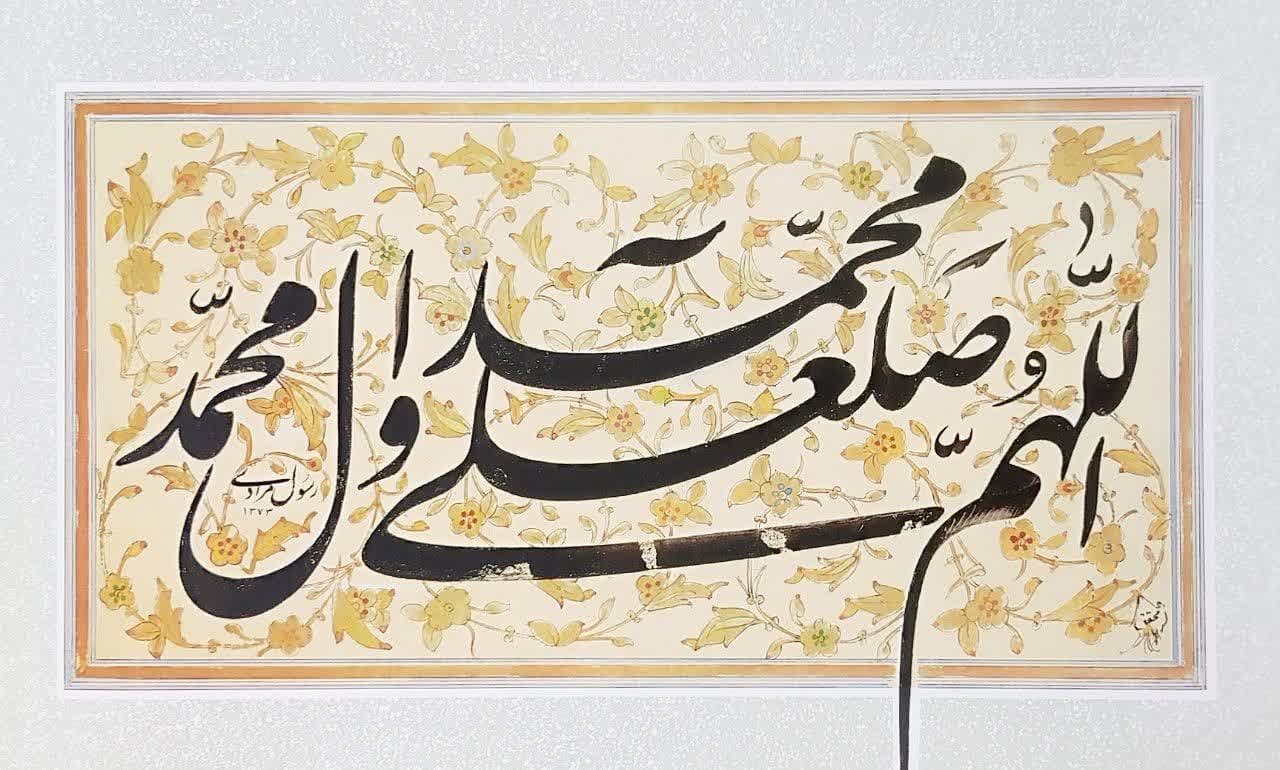 اللّهُمّ صَل علی محمّد و آل محمّد
رسول مرادی
۱۳۷۳